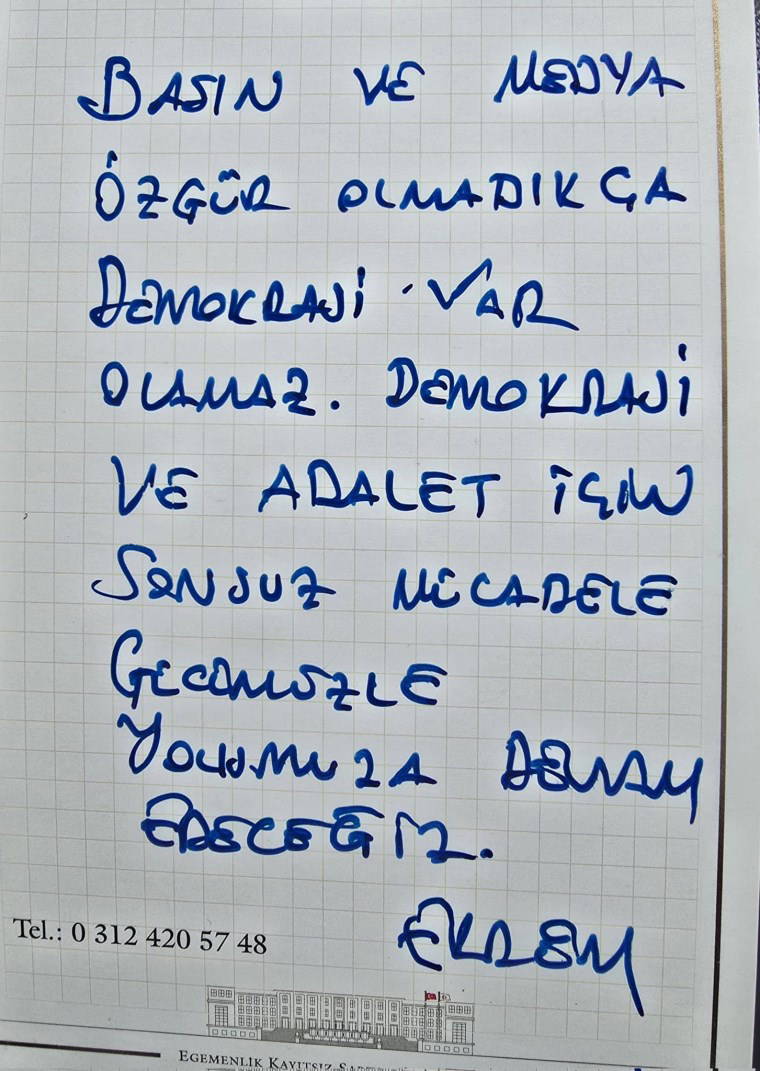 BASIN VE MEDYA
ÖZGÜR OLMADIKÇA
DEMOKRASİ VAR
OLAMAZ. DEMOKRASİ
VE ADALET İÇİN
SONSUZ MÜCADELE
GÜCÜMÜZLE
YOLUMUZA DEVAM
EDECEĞİZ.
EKREM
Tel.: 0 312 420 57 48
EGEMENLİK KAYITSIZ